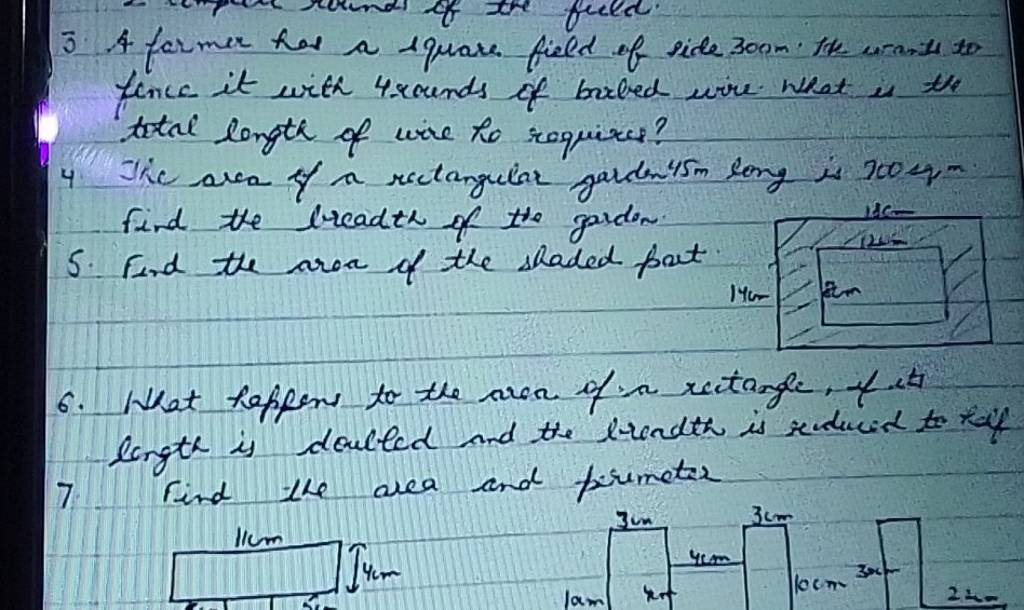 of the field.
3. A farmer has a square field of side 300m. He wants to
fence it with 4 rounds of barbed wire. What is the
total length of wire he requires?
4. The area of a rectangular garden 45m long is 900 sq m.
Find the breadth of the garden.
18cm
12cm
5. Find the area of the shaded part.
14cm 8cm
6. What happens to the area of a rectangle, if its
length is doubled and the breadth is reduced to half
7. Find the area and perimeter
11cm 3cm 3cm
4cm 4cm
10cm